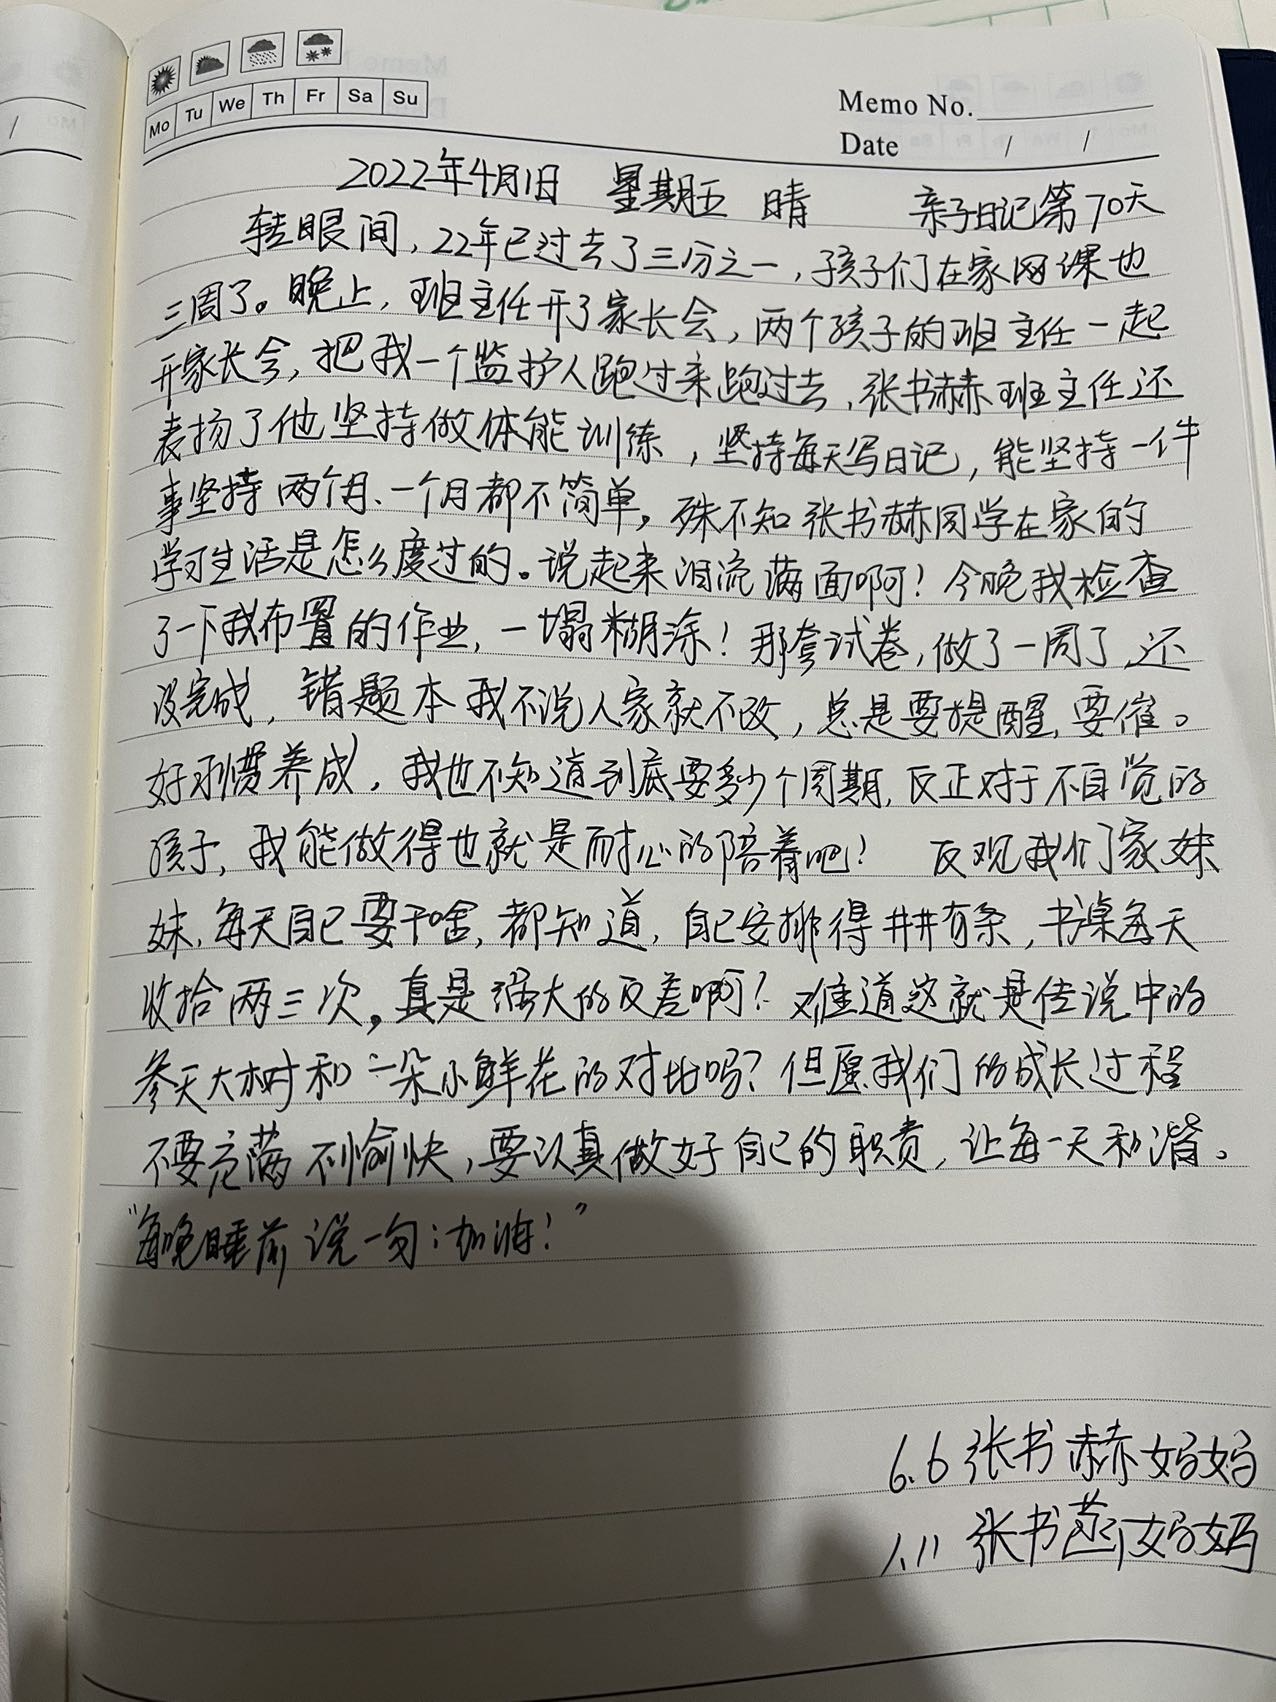 Mo Tu We Th Fr Sa Su
Memo No.
Date / /
2022年4月1日 星期五 晴 亲子日记第70天
转眼间，22年已过去了三分之一，孩子们在家网课也
三周了。晚上，班主任开了家长会，两个孩子的班主任一起
开家长会，把我一个监护人跑过来跑过去，张书赫班主任还
表扬了他坚持做体能训练，坚持每天写日记，能坚持一件
事坚持两个月、一个月都不简单，殊不知张书赫同学在家的
学习生活是怎么度过的。说起来泪流满面啊！今晚我检查
了一下我布置的作业，一塌糊涂！那套试卷，做了一周了，还
没完成，错题本我不说人家就不改，总是要提醒，要催。
好习惯养成，我也不知道到底要多少个周期，反正对于不自觉的
孩子，我能做得也就是耐心的陪着吧！ 反观我们家妹
妹，每天自己要干啥，都知道，自己安排得井井有条，书桌每天
收拾两三次，真是强大的反差啊？难道这就是传说中的
参天大树和一朵小鲜花的对比吗？但愿我们的成长过程
不要充满不愉快，要认真做好自己的职责，让每一天和谐。
“每晚睡前说一句：加油！”
6.6 张书赫妈妈
1.11 张书妈妈